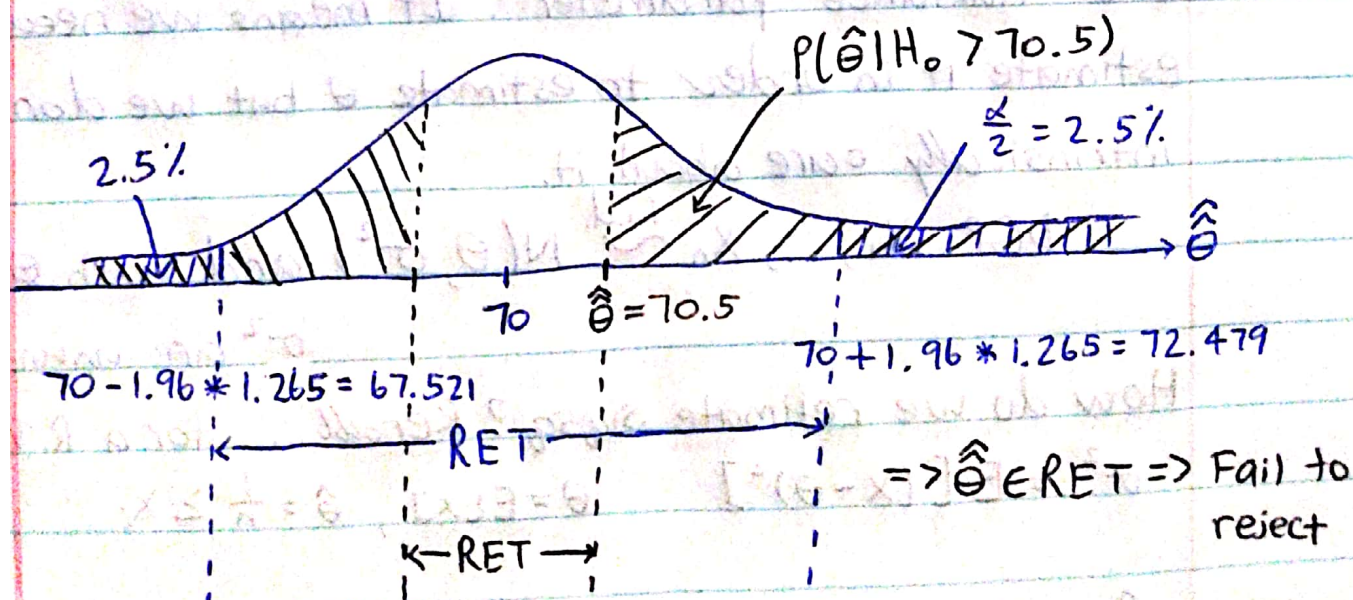 P(θ̂|H₀ > 70.5)
α/2 = 2.5%
2.5%
θ̂̂
70
θ̂̂ = 70.5
70 + 1.96 * 1.265 = 72.479
70 - 1.96 * 1.265 = 67.521
RET
=> θ̂̂ ∈ RET => Fail to
reject
RET